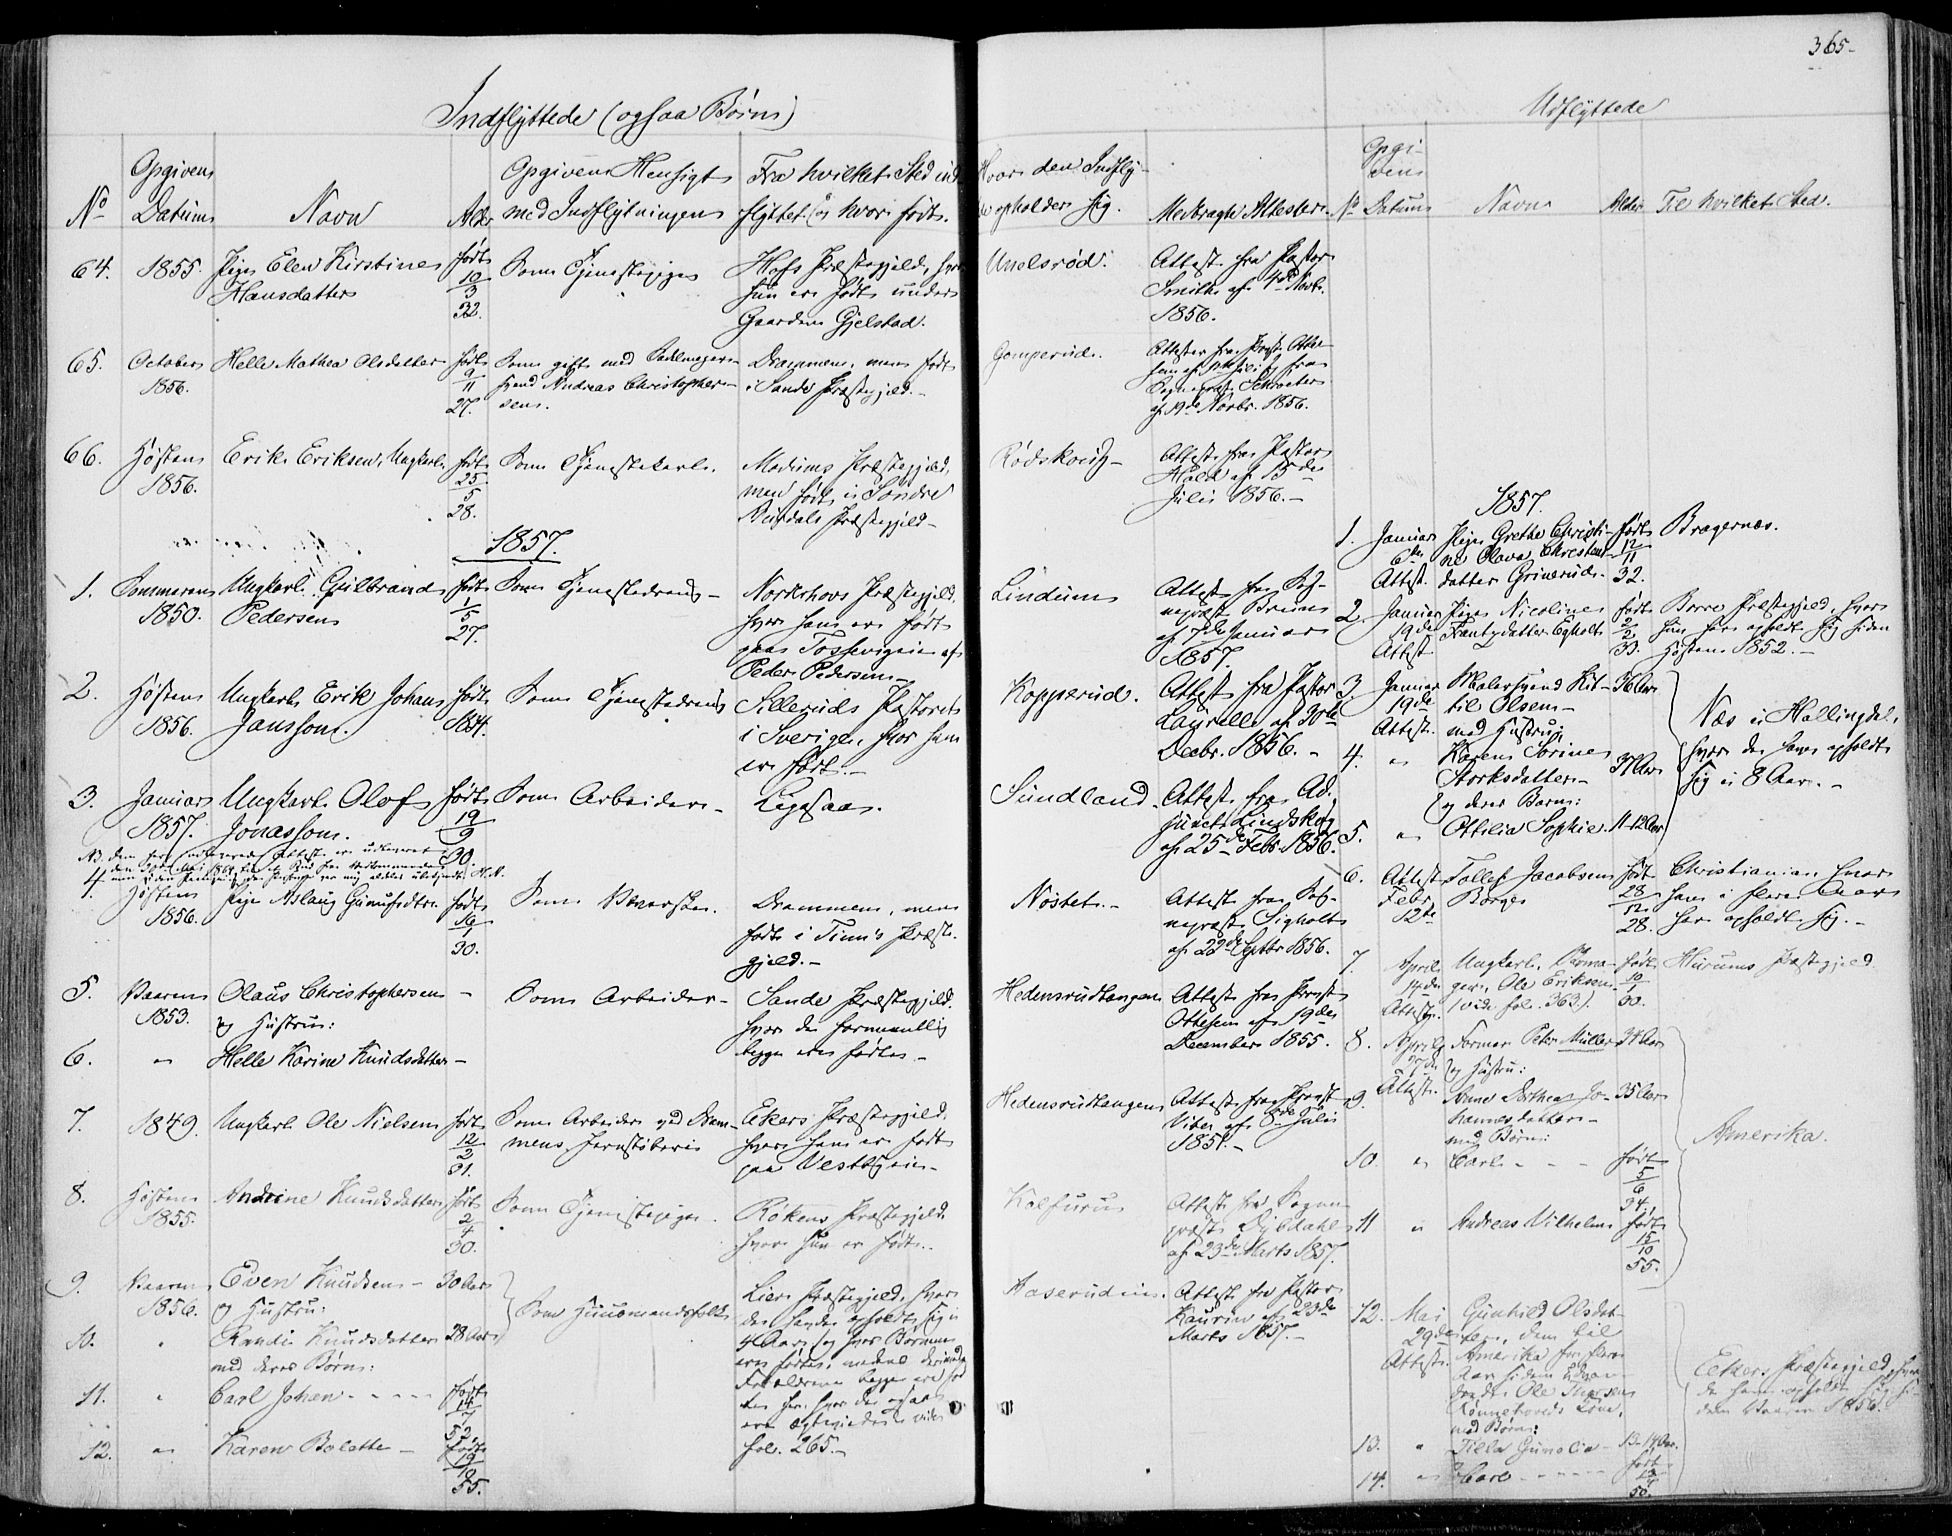 365.
Indflyttede (ogsaa Børn)
No
Opgivens Datum
Navn
Alder
Opgivens Hensigt med Indflytningen
Fra hvilket Sted indflyttet og hvor født.
Hvor den Indflyttede opholder sig.
Medbragte Attester.
64. 1855. Pige Elen Kirstine Hansdatter født 10/3 32. Som Tjenestepige Hofs Præstegjeld, hvor hun er født under Gaarden Gjelstad. Unelsrød. Attest fra Pastor Smith af 4de Novbr. 1856.
65. October 1856. Helle Mathea Olsdatter født 9/11 27. Som gift med Sadelmagersvend Andreas Christophersen. Drammen, men født i Sande Præstegjeld. Gomperud.
af 19de Novbr. 1856.
66. Høsten 1856. Erik Eriksen, Ungkarl født 25/5 28. Som Tjenestekarl. Modums Præstegjeld, men født i Søndre Aurdals Præstegjeld. Rødskoug Attest fra Pastor Hald af 15de Juli 1856.
1857.
1. Sommeren 1850. Ungkarl Gulbrand Pedersen født 1/5 27. Som Tjenestedreng Nordrehovs Præstegjeld, hvor han er født paa Tossevigeie af Peder Pedersen Lindum Attest fra Sognepræst Bruun af 7de Januar 1857.
2. Høsten 1856. Ungkarl Erik Johan Jansson. født 1834. Som Tjenestedreng Silleruds Pastorat i Sverige, hvor han er født. Kopperud. Attest fra Pastor Laurell af 30te Decbr. 1856.
3. Januar 1857. Ungkarl Olof Jonasson. født 19/9 30. Som Arbeider Ligesaa. Sundland. Attest fra Adjunct Lindskog af 25de Febr 1856.
4. Høsten 1856. Pige Aslaug Gunulfsdtr. født 16/1 30. Som Væverske. Drammen, men født i Tinns Præstegjeld. Nøstet. Attest fra Sognepræst Sigholt af 22de Septbr 1856.
5. Vaaren 1853. Olaus Christophersen og Hustru: Som Arbeider Sande Præstegjeld. hvor de formentlig begge ere fødte Hedensrudtangen Attest fra Provst Ottesen af 19de December 1855.
6. " Helle Karine Knudsdatter
7. 1849. Ungkarl Ole Nielsen født 12/2 31. Som Arbeider ved Drammens Jernstøberi Ekers Præstegjeld. hvor han er født paa Vestbyeie Hedensrudtangen Attest fra Provst Vibe af 8de Juli 1851.
8. Høsten 1855. Andrine Knudsdatter født 2/4 30. Som Tjenestepige. Røkens Præstegjeld hvor hun er født. Kolfuru Attest fra Sognepræst Dybdahl af 23de Marts 1857.
9. Vaaren 1856. Even Knudsen 30 Aar og Hustru: Som Huusmandsfolk Liers Præstegjeld, hvor de havde opholdt sig i 4 Aar, og hvor Børnene ere fødte, medens derimod Forældrene begge ere fødte her, hvor de ogsaa ere ægteviede vide fol. 265. Haserudeie. Attest fra Pastor Kaurin af 23de Marts 1857.
10. " Randi Knudsdatter 28 Aar med deres Børn:
11. " Carl Johan født 14/7 52.
12. " Karen Bolette født 19/10 55.
Udflyttede
No
Opgivens Datum
Navn
Alder
Til hvilket Sted.
1857.
1. Januar 6te Attest. Pige Grethe Christine Olava Christensdatter Grinerud. født 12/11 32. Bragernæs.
2. Januar 19de Attest Pige Nicoline Frantzdatter Egholt født 2/2 33. Borre Præstegjeld, hvor hun har opholdt sig siden Høsten 1852.
3 Januar 19de Attest. Malersvend Kittil Olsen med Hustru, 36 Aar Næs i Hallingdal, hvor de have opholdt sig i 8 Aar.
4. " Karen Sorine Storksdatter 37 Aar og deres Barn:
5. " Ottilia Sophie. 11-12 Aar
6. Attest Febr 12te Tollef Jacobsen Borge født 28/12 28. Christiania, hvor han i flere Aar har opholdt sig.
7. April 14de Attest. Ungkarl, Ole Eriksen. (vide fol. 363). født 10/1 30. Hurums Præstegjeld
8. April 27de Attest. Former Peter Müller 34 Aar og Hustru: Amerika.
9. Anne Dorthea Johannesdatter 35 Aar med Børn:
10. " Carl født 5/6 54.
11 " Andreas Vilhelm født 15/10 55.
12. Mai 29de Attest. Gunhild Olsdatter, dem til Amerika for flere Aar siden udvandrede Ole Kone, med Børn: Eekers Præstegjeld, hvor de have opholdt sig siden Vaaren 1856.
13. " 13-14 Aar.
14. " Carl født 50.